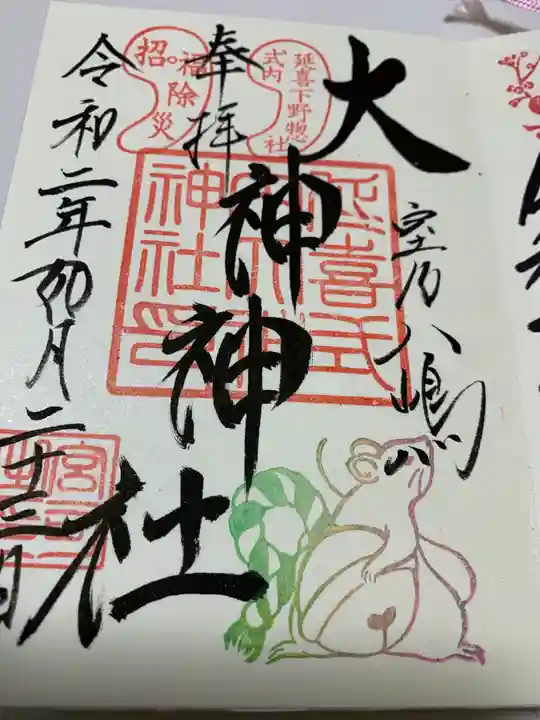 延喜下野惣社
式内
招福除災
奉拝
大神神社
室乃八嶋
延喜式
神社印
令和二年卯月二十三日